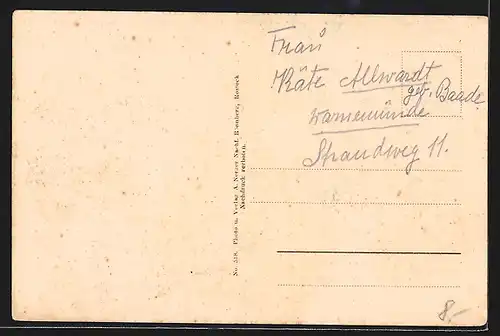 Frau
Käte Allwardt
geb. Baade
Warnemünde
Strandweg 11.
No. 518. Photo u. Verlag A. Nachf. Rostock
Nachdruck verboten.
8.-